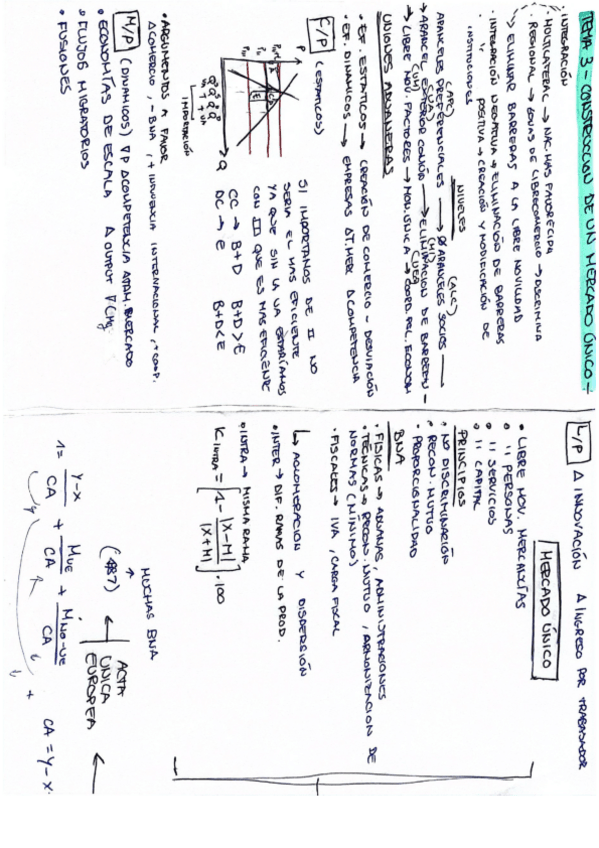 TEMA 3 - CONSTRUCCION DE UN MERCADO ÚNICO -
· INTEGRACIÓN
· MULTILATERAL → NAC. MAS FAVORECIDA
· REGIONAL → ZONAS DE LIBRECOMERCIO → DISCRIMINA
↳ ELIMINAR BARRERAS A LA LIBRE MOVILIDAD
· INTEGRACIÓN NEGATIVA → ELIMINACIÓN DE BARRERAS
" POSITIVA → CREACIÓN Y MODIFICACIÓN DE
INSTITUCIONES
NIVELES
(APC) (ALC)
ARANCELES PREFERENCIALES → Ø ARANCELES SOCIOS →
(UA)
→ ARANCEL EXTERIOR COMÚN → ELIMINACION DE BARRERAS →
→ LIBRE MOV. FACTORES → MON. UNICA → COORD. POL. ECONOM
UNIONES ADUANERAS
· EF. ESTATICOS → CREACIÓN DE COMERCIO - DESVIACIÓN
· EF. DINAMICOS → EMPRESAS ΔT. MER ΔCOMPETENCIA
C/P (ESTATICOS)
P
Q
IMPORTACIÓN
SI IMPORTAMOS DE II NO
SERIA EL MAS EFICIENTE
YA QUE SIN LA UA ESTARÍAMOS
CON III QUE ES MAS EFICIENTE
CC → B+D B+D>E
DC → E B+D<E
· ARGUMENTOS A FAVOR
ΔCOMERCIO, -BNA, + INFLUENCIA INTERNACIONAL, + COOP.
M/P (DINAMICOS) ∇P ΔCOMPETENCIA ΔDIM. MERCADO
· ECONOMÍAS DE ESCALA Δ OUTPUT ∇CMg
· FLUJOS MIGRATORIOS
· FUSIONES
L/P Δ INNOVACIÓN Δ INGRESO POR TRABAJADOR
MERCADO ÚNICO
· LIBRE MOV. MERCANCÍAS
· " PERSONAS
· " SERVICIOS
· " CAPITAL
PRINCIPIOS
· NO DISCRIMINACIÓN
· RECON. MUTUO
· PROPORCIONALIDAD
BNA
· FISICAS → ADUANAS, ADMINISTRACIONES
· TÉCNICAS → RECON. MUTUO, ARMONIZACION DE
NORMAS (MÍNIMO)
· FISCALES → IVA, CARGA FISCAL
↳ AGLOMERACION Y DISPERSIÓN
· INTER → DIF. RAMAS DE LA PROD.
· INTRA → MISMA RAMA
K INTRA = [1 - |X-M| / |X+M|] · 100
MUCHAS BNA
ACTA
ÚNICA
EUROPEA
1 = Y-X / CA + M UE / CA + M NO-UE / CA
CA = Y - X